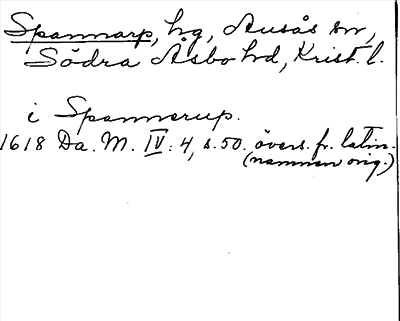 Spannarp, hg, Ausås sn,
Södra Åsbo hd, Krist. l.
i Spannerup.
1618 Da. M. IV: 4, s. 50. övers. fr. latin.
(namnen orig.)